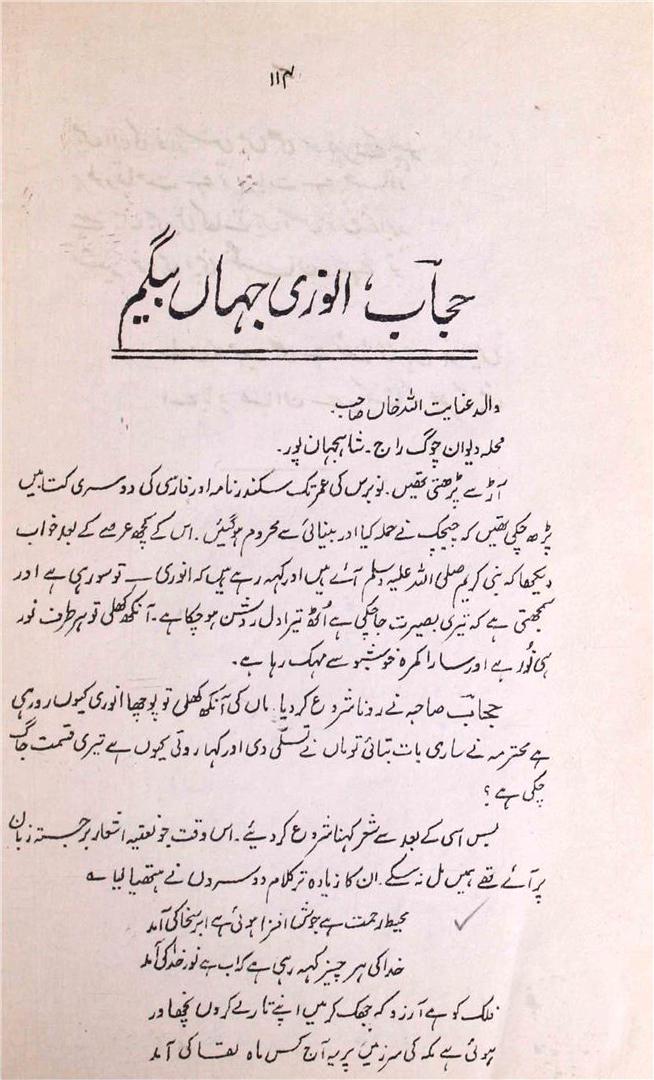 ۱۱۴
حجاؔب، انوری جہاں بیگم
والد عنایت اللہ خاں صاحب
محلہ دیوان جوگ راج ۔ شاہجہان پور۔
آڑ سے پڑھتی تھیں۔ نو برس کی عمر تک سکندر نامہ اور فارسی کی دوسری کتابیں
پڑھ چکی تھیں کہ چیچک نے حملہ کیا اور بینائی سے محروم ہوگئیں۔ اس کے کچھ عرصے کے بعد خواب
دیکھا کہ نبی کریم صلی اللہ علیہ وسلم آئے ہیں اور کہہ رہے ہیں کہ انوری ۔ تو سو رہی ہے اور
سمجھتی ہے کہ تیری بصیرت جاچکی ہے اُٹھ تیرا دل روشن ہوچکا ہے۔ آنکھ کھلی تو ہر طرف نور
ہی نُور ہے اور سارا کمرہ خوشبو سے مہک رہا ہے۔
حجاؔب صاحبہ نے رونا شروع کردیا۔ ماں کی آنکھ کھلی تو پوچھا انوری کیوں رو رہی
ہے محترمہ نے ساری بات بتائی تو ماں نے تسلّی دی اور کہا روتی کیوں ہے تیری قسمت جاگ
چکی ہے؟
بس اسی کے بعد سے شعر کہنا شروع کردیئے۔ اس وقت جو نعتیہ اشعار برجستہ زبان
پر آئے تھے ہمیں مل نہ سکے۔ ان کا زیادہ تر کلام دوسروں نے ہتھیا لیا ؎
محیط رحمت ہے جوش افزا ہوئی ہے ابر سخا کی آمد
خدا کی ہر چیز کہہ رہی ہے کہ اب ہے نور خدا کی آمد
فلک کو ہے آرزو کہ جھک کر میں اپنے تارے کروں نچھاور
ہوئی ہے مکہ کی سرزمیں پر یہ آج کس ماہ لقا کی آمد